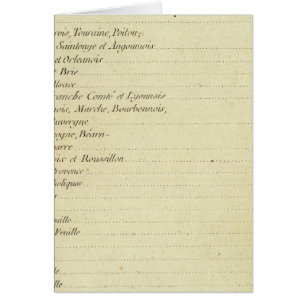 ois, Touraine, Poitou,
Saintonge et Angoumois
et Orleanois
Brie
lsace
ranche Comté et Lyonnois
nois, Marche, Bourbonnois,
uvergne
ogne, Béarn
arre
oix et Roussillon
Provence
holique
euille
Feuille